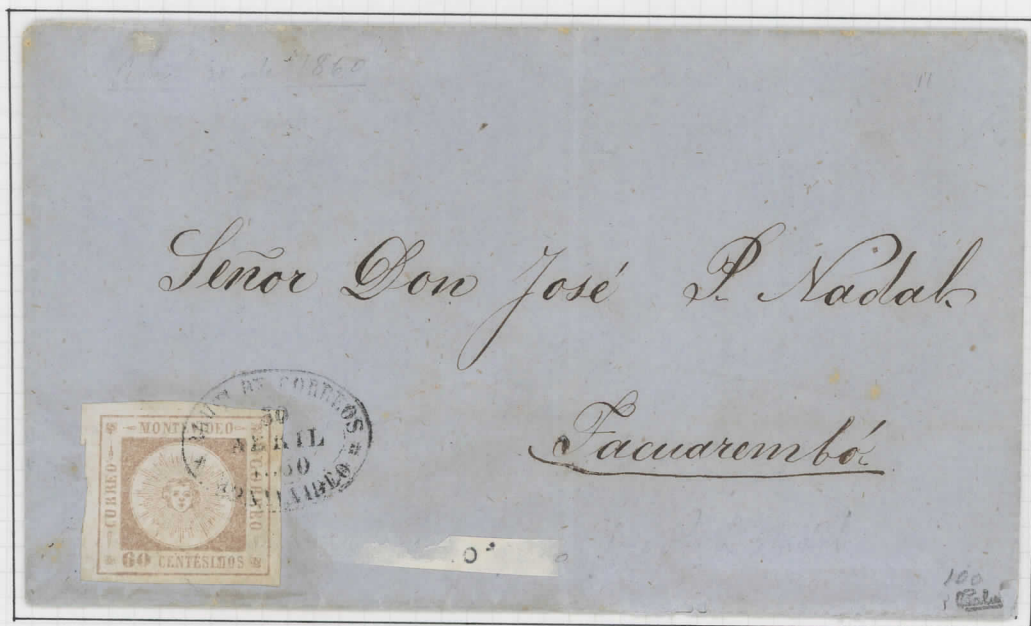 1860
Señor Don José P. Nadal
Tacuarembó
DE CORREOS
30
ABRIL
MONTEVIDEO
MONTEVIDEO
CORREO
CORREO
60 CENTÉSIMOS
100